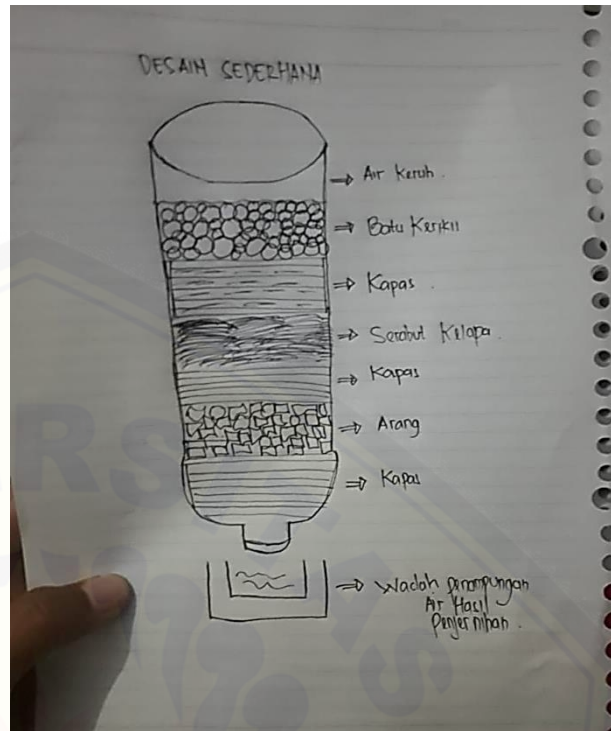 DESAIN SEDERHANA
⇒ Air Keruh.
⇒ Batu Kerikil
⇒ Kapas.
⇒ Serabut Kelapa.
⇒ Kapas
⇒ Arang
⇒ Kapas
⇒ Wadah penampungan
Air Hasil
Penjernihan.